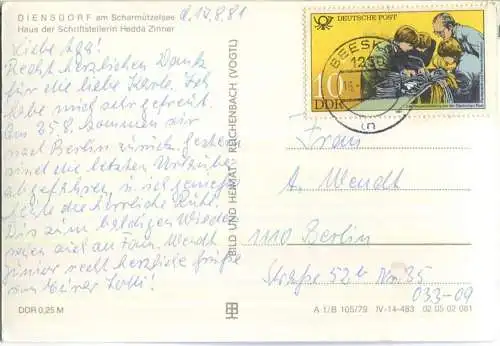 DIENSDORF am Scharmützelsee
Haus der Schriftstellerin Hedda Zinner
d. 14.8.81
Liebe Aga!
Recht herzlichen Dank
für die liebe Karte. Ich
habe mich sehr gefreut.
Am 25.8. kommen wir
nach Berlin zurück. Gestern
sind die letzten Urlauber
abgefahren u. wir genießen
hier die herrliche Ruhe.
Bis zum baldigen Wieder-
sehen auch an Fam. Wendt
junior recht herzliche Grüße
von Deiner
DDR 0,25 M
BILD UND HEIMAT REICHENBACH (VOGTL)
DEUTSCHE POST
10
DDR
BEESKOW
1230
Frau
A. Wendt
1110 Berlin
Straße 52b Nr. 35
033-09
A 1/B 105/79 IV-14-483 02 05 02 081